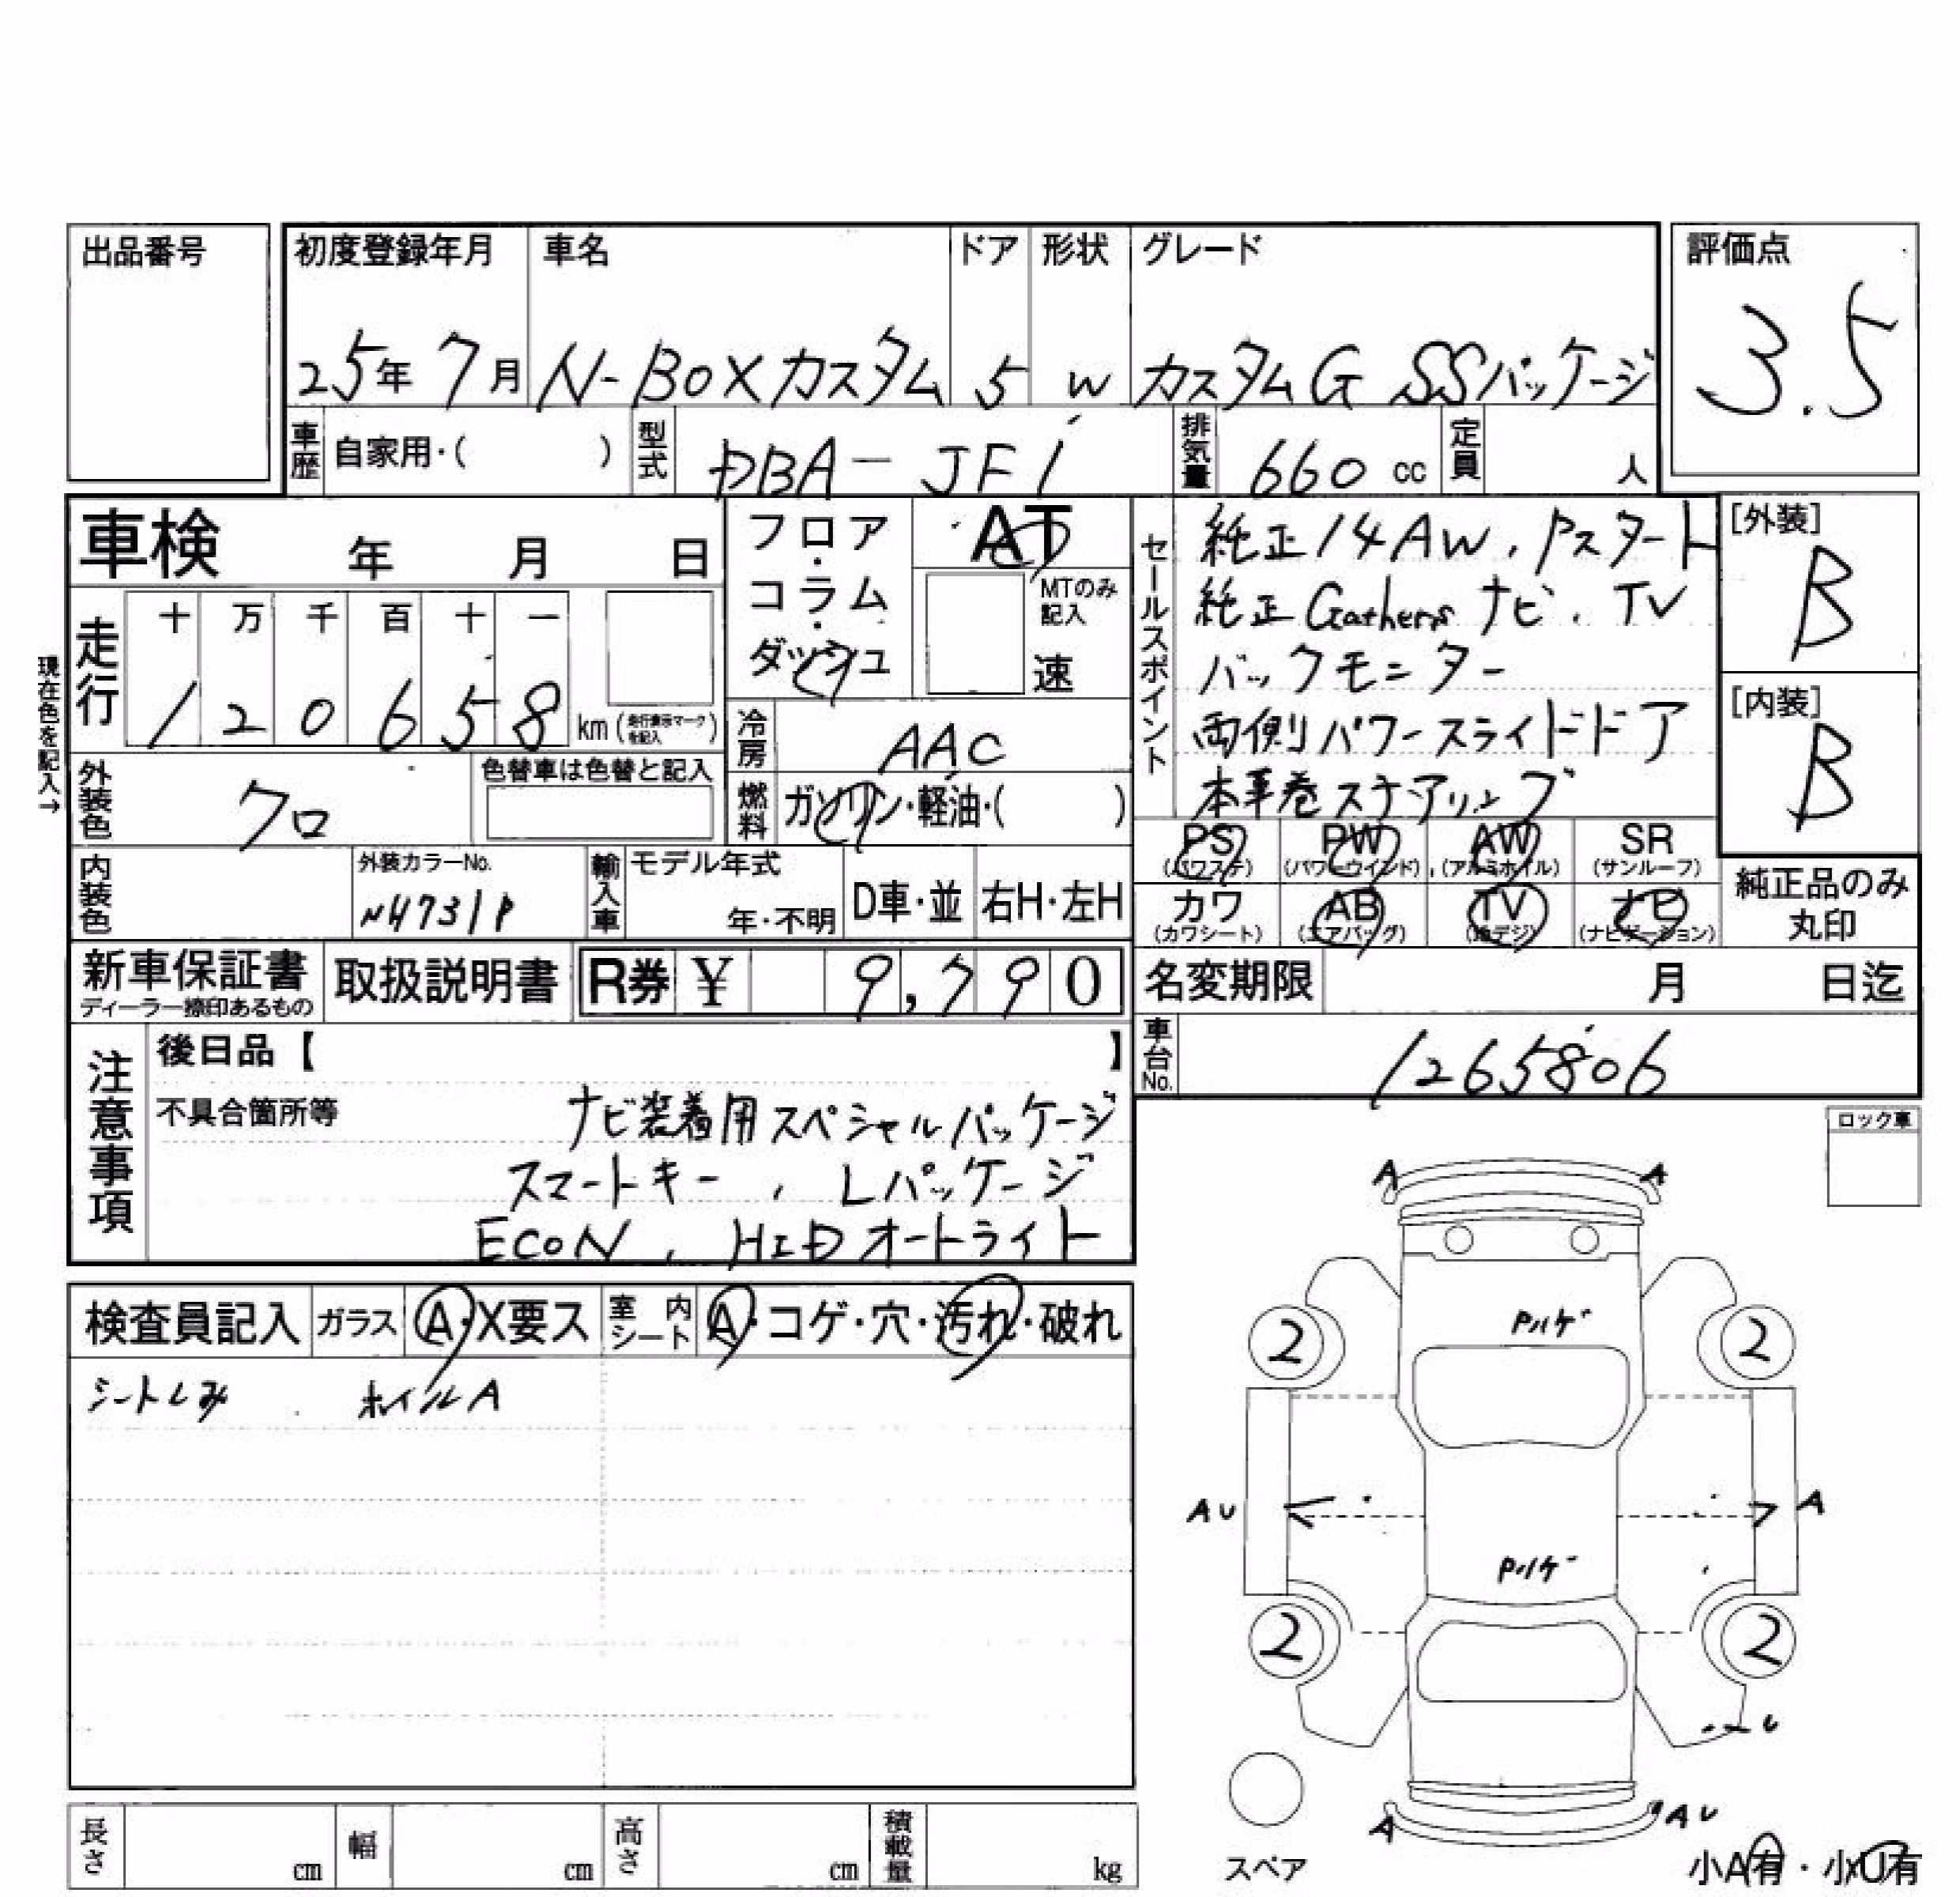 出品番号
初度登録年月 車名 ドア 形状 グレード
評価点
25年7月 N-BOXカスタム 5 W カスタムG SSパッケージ
3.5
車歴 自家用・( ) 型式 DBA-JF1 排気量 660 cc 定員 人
車検 年 月 日
フロア・コラム・ダッシュ
AT
MTのみ記入
速
セールスポイント
純正14AW、Pスタート
純正Gathersナビ、TV
バックモニター
両側パワースライドドア
本革巻ステアリング
[外装]
B
[内装]
B
現在色を記入→
走行 十 万 千 百 十 一
1 2 0 6 5 8 km (走行表示マークを記入)
冷房 AAC
燃料 ガソリン・軽油・( )
外装色 クロ 色替車は色替と記入
内装色 外装カラーNo. NH731P
輸入車 モデル年式 年・不明 D車・並 右H・左H
PS (パワステ) PW (パワーウインド) AW (アルミホイル) SR (サンルーフ)
カワ (カワシート) AB (エアバッグ) TV (地デジ) ナビ (ナビゲーション)
純正品のみ丸印
新車保証書 ディーラー捺印あるもの 取扱説明書 R券 ¥ 9,790
名変期限 月 日迄
車台No. 1265806
注意事項
後日品【 】
不具合箇所等 ナビ装着用スペシャルパッケージ
スマートキー、Lパッケージ
ECON、HIDオートライト
ロック車
検査員記入 ガラス A・X要ス 室内シート A・コゲ・穴・汚れ・破れ
シートしみ ホイルA
A A
Pハゲ
2 2
AU A
Pハゲ
2 2
U
A AU
スペア
小A有・小U有
長さ cm 幅 cm 高さ cm 積載量 kg